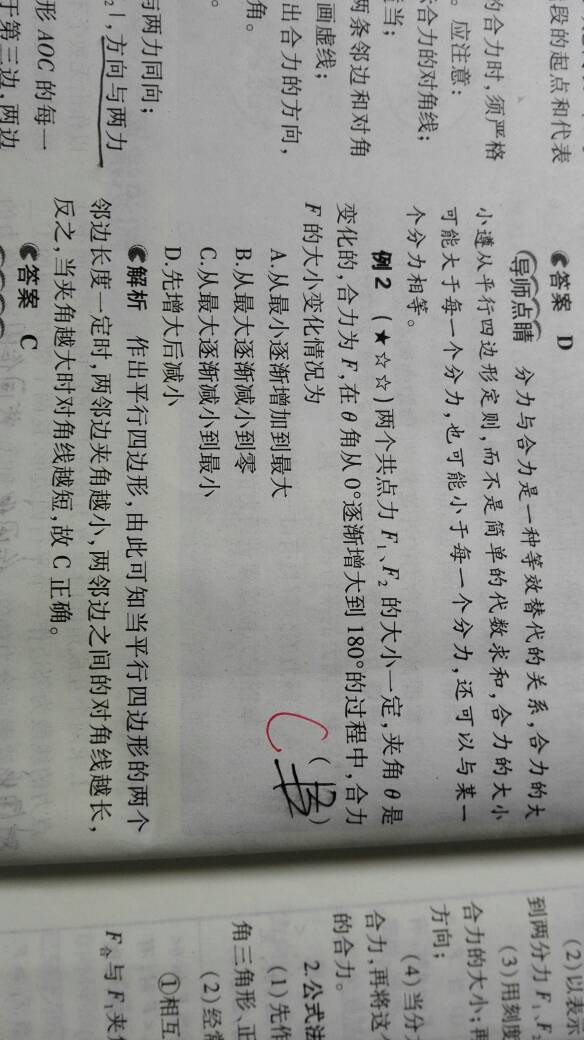 段的起点和代表
的合力时,须严格
。应注意:
合力的对角线;
当;
两条邻边和对角
画虚线;
出合力的方向,
角。
。
与两力同向;
₂|,方向与两力
形 AOC 的每一
于第三边,两边
答案 D
导师点睛 分力与合力是一种等效替代的关系,合力的大
小遵从平行四边形定则,而不是简单的代数求和,合力的大小
可能大于每一个分力,也可能小于每一个分力,还可以与某一
个分力相等。
例2 (★☆☆)两个共点力 F₁、F₂ 的大小一定,夹角 θ 是
变化的,合力为 F,在 θ 角从 0°逐渐增大到 180°的过程中,合力
F 的大小变化情况为 ( )
C
A.从最小逐渐增加到最大
B.从最大逐渐减小到零
C.从最大逐渐减小到最小
D.先增大后减小
解析 作出平行四边形,由此可知当平行四边形的两个
邻边长度一定时,两邻边夹角越小,两邻边之间的对角线越长,
反之,当夹角越大时对角线越短,故 C 正确。
答案 C
(2)以表示
到两分力 F₁、F₂
(3)用刻度
合力的大小;再
方向;
(4)当分
合力,再将这
的合力。
2.公式法
(1)先作
角三角形、正
(2)经常
①相互
F合与 F₁夹